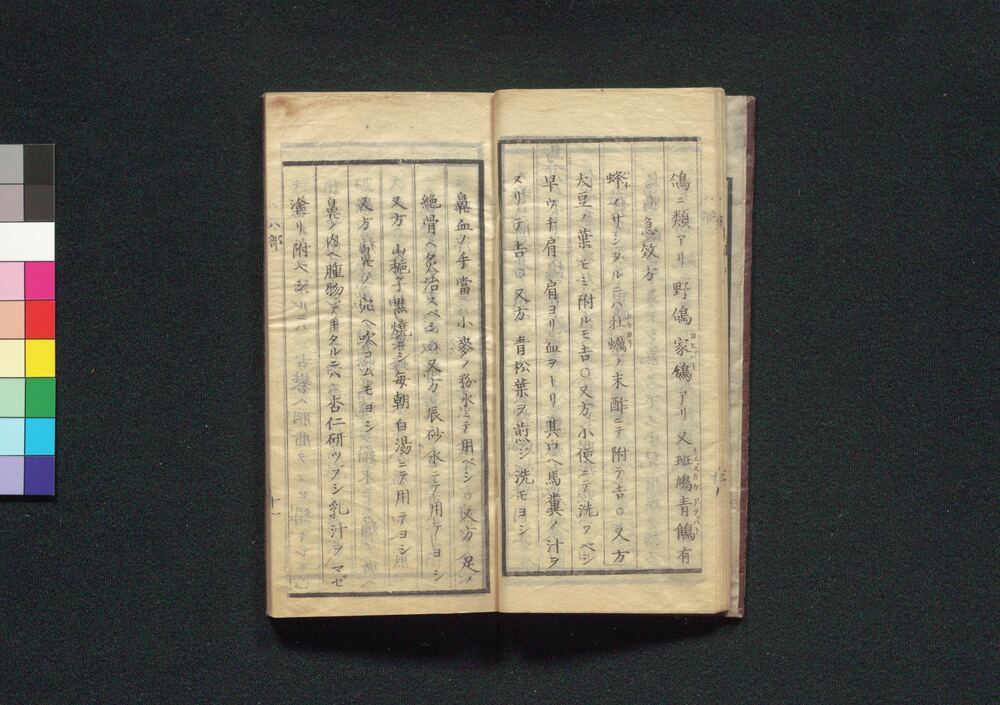 鴿ニ類アリ野鴿家鴿アリ又斑鳩青鶴有
急效方
蜂ノサシタルニハ牡蠣ノ末酢ニテ附テ吉〇又方
大豆ノ葉モミ附ルモ吉〇又方小便ニテ洗フベシ
早ウチ肩肩ヨリ血ヲトリ其口ヘ馬糞ノ汁ヲ
ヌリテ吉〇又方青松葉ヲ煎ジ洗モヨシ
鼻血ノ手當小麥ノ粉水ニテ用ベシ〇又方足ノ
絶骨ヘ灸治スベシ〇又方辰砂水ニテ用テヨシ
又方山梔子黒燒ニシ毎朝白湯ニテ用テヨシ
又方鼻ノ穴ヘ吹コムモヨシ
鼻ノ内ヘ腫物デキタルニハ杏仁研ツブシ乳汁ヲマゼ
塗リ附ベシ
ハ部
十一